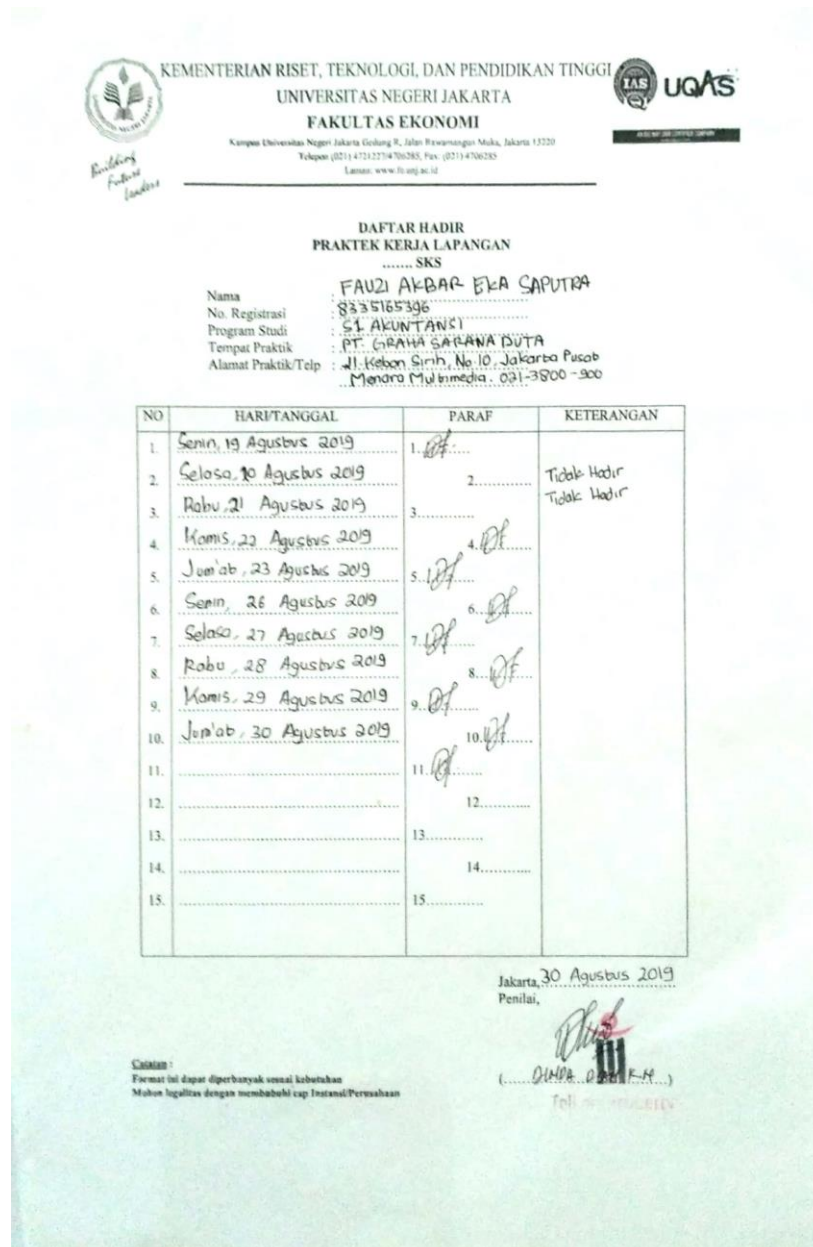 KEMENTERIAN RISET, TEKNOLOGI, DAN PENDIDIKAN TINGGI
UNIVERSITAS NEGERI JAKARTA
FAKULTAS EKONOMI
Kampus Universitas Negeri Jakarta Gedung R, Jalan Rawamangun Muka, Jakarta 13220
Telepon (021) 4721227/4706285, Fax: (021) 4706285
Laman: www.fe.unj.ac.id
Building
Future
Leaders
IAS UQAS
DAFTAR HADIR
PRAKTEK KERJA LAPANGAN
....... SKS
Nama : FAUZI AKBAR EKA SAPUTRA
No. Registrasi : 8335165396
Program Studi : S1 AKUNTANSI
Tempat Praktik : PT. GRAHA SARANA DUTA
Alamat Praktik/Telp : Jl. Kebon Sirih, No 10, Jakarta Pusat
Menara Multimedia. 021-3800-900
NO HARI/TANGGAL PARAF KETERANGAN
1. Senin, 19 Agustus 2019 1.
2. Selasa, 10 Agustus 2019 2. Tidak Hadir
3. Rabu, 21 Agustus 2019 3. Tidak Hadir
4. Kamis, 22 Agustus 2019 4.
5. Jum'at, 23 Agustus 2019 5.
6. Senin, 26 Agustus 2019 6.
7. Selasa, 27 Agustus 2019 7.
8. Rabu, 28 Agustus 2019 8.
9. Kamis, 29 Agustus 2019 9.
10. Jum'at, 30 Agustus 2019 10.
11. 11.
12. 12.
13. 13.
14. 14.
15. 15.
Jakarta, 30 Agustus 2019
Penilai,
Catatan :
Format ini dapat diperbanyak sesuai kebutuhan
Mohon legalitas dengan membubuhi cap Instansi/Perusahaan